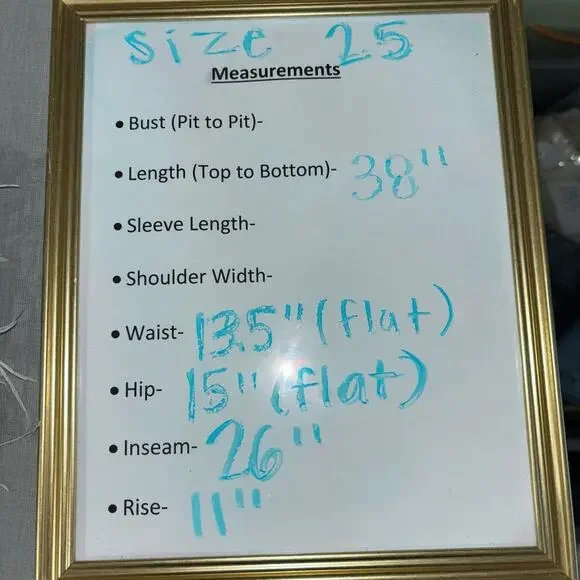 Size 25
Measurements
• Bust (Pit to Pit)-
• Length (Top to Bottom)- 38"
• Sleeve Length-
• Shoulder Width-
• Waist- 13.5" (flat)
• Hip- 15" (flat)
• Inseam- 26"
• Rise- 11"